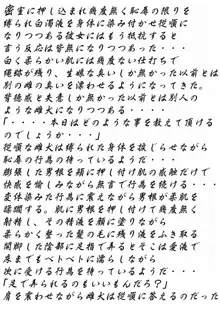 密室に押し込まれ幾度無く恥辱の限りを
縛られ白濁液を身体に染み付かせ従順に
なりつつある彼女にはもう抵抗すると
言う反応は皆無になりつつあった・・・
白く柔らかい肌には幾度ない仕打ちで
縄跡が残り、生娘な臭いしか無かった以前とは
別の雌の臭いを漂わせるようになってきた。
背徳感と失意しか無かった以前とは別人への
ような雌犬になりつつある・・・・
「・・・・本日はどのような事を教えて頂ける
のでしょうか・・・」
従順な雌犬は縛られた身体を捩じらせながら
恥辱の行為の待っているようだ・・・
膨張した男根を頬に押し付け肌の感触だけで
快感を愉しみながら無言で行為を続ける・・・
変体染みた行為に震えながら男根が柔肌を
蹂躙する。肌に男根を押し付けて幾度無く
射精し、その精液を顔に塗りながら
柔らかく整った髪の毛に残り液をふき取る
開脚した陰部に足指で弄るとそこは愛液で
床までもベトベトに濡らしながら
次に受ける行為を待っているようだ・・・
「足で弄られるのもいいもんだろ?」
肩を震わせながら雌犬は従順に答えるのだった